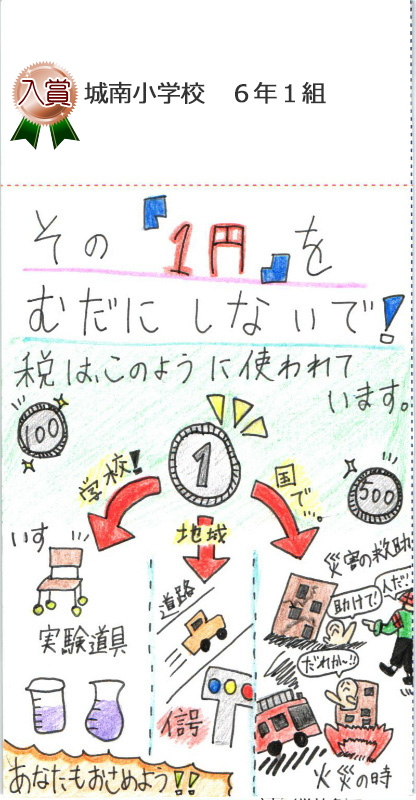 入賞 城南小学校 6年1組
その『1円』を
むだにしないで!
税は、このように使われて
います。
100
1
500
学校!
地域
国で…。
いす
実験道具
道路
信号
災害の救助
助けて!
人だ!
だれかー!!
火災の時
あなたもおさめよう!!